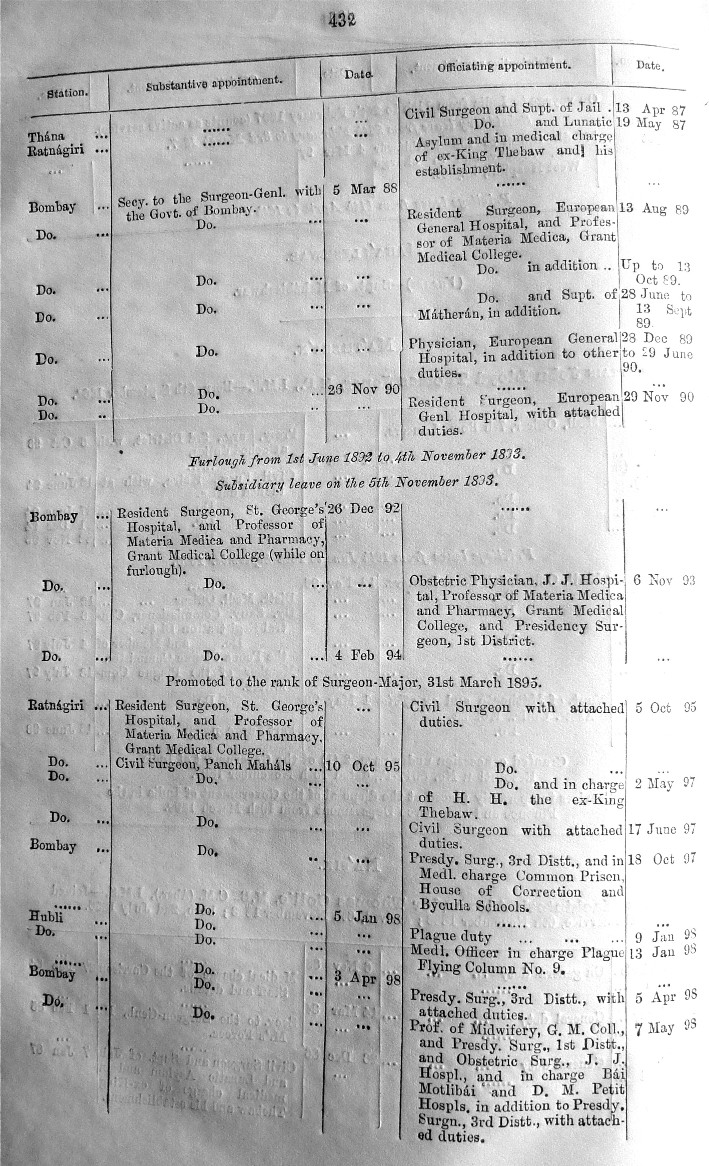 432
Station. Substantive appointment. Date. Officiating appointment. Date.
Thána ... ...... ... Civil Surgeon and Supt. of Jail . 13 Apr 87
Ratnágiri ... ...... ... Do. and Lunatic 19 May 87
Asylum and in medical charge
of ex-King Thebaw and his
establishment.
Bombay ... Secy. to the Surgeon-Genl. with 5 Mar 88 ...... ...
the Govt. of Bombay.
Do. ... Do. ... ... Resident Surgeon, European 13 Aug 89
General Hospital, and Profes-
sor of Materia Medica, Grant
Medical College.
Do. ... Do. ... ... Do. in addition .. Up to 13
Oct 89.
Do. ... Do. ... ... Do. and Supt. of 28 June to
Mátherán, in addition. 13 Sept
89.
Do. ... Do. ... ... Physician, European General 28 Dec 89
Hospital, in addition to other to 29 June
duties. 90.
Do. ... Do. ... 26 Nov 90 ...... ...
Do. .. Do. .. ... Resident Surgeon, European 29 Nov 90
Genl Hospital, with attached
duties.
Furlough from 1st June 1892 to 4th November 1893.
Subsidiary leave on the 5th November 1893.
Bombay ... Resident Surgeon, St. George's 26 Dec 92 ...... ...
Hospital, and Professor of
Materia Medica and Pharmacy,
Grant Medical College (while on
furlough).
Do. ... Do. ... ... Obstetric Physician, J. J. Hospi- 6 Nov 93
tal, Professor of Materia Medica
and Pharmacy, Grant Medical
College, and Presidency Sur-
geon, 1st District.
Do. ... Do. ... 4 Feb 94 ...... ...
Promoted to the rank of Surgeon-Major, 31st March 1895.
Ratnágiri ... Resident Surgeon, St. George's ... Civil Surgeon with attached 5 Oct 95
Hospital, and Professor of duties.
Materia Medica and Pharmacy,
Grant Medical College.
Do. ... Civil Surgeon, Panch Maháls ... 10 Oct 95 Do. ... ...
Do. ... Do. ... ... Do. and in charge 2 May 97
of H. H. the ex-King
Thebaw.
Do. ... Do. ... ... Civil Surgeon with attached 17 June 97
duties.
Bombay ... Do. .. ... Presdy. Surg., 3rd Distt., and in 18 Oct 97
Medl. charge Common Prison,
House of Correction and
Byculla Schools.
...... Do. ... 5 Jan 98 ...... ...
Hubli ... Do. ... ... Plague duty ... ... ... 9 Jan 98
Do. ... Do. ... ... Medl. Officer in charge Plague 13 Jan 98
Flying Column No. 9.
...... Do. ... 3 Apr 98 ...... ...
Bombay ... Do. ... ... Presdy. Surg., 3rd Distt., with 5 Apr 98
attached duties.
Do. ... Do. ... ... Prof. of Midwifery, G. M. Coll., 7 May 98
and Presdy. Surg., 1st Distt.,
and Obstetric Surg., J. J.
Hospl., and in charge Bái
Motlibái and D. M. Petit
Hospls. in addition to Presdy.
Surgn., 3rd Distt., with attach-
ed duties.